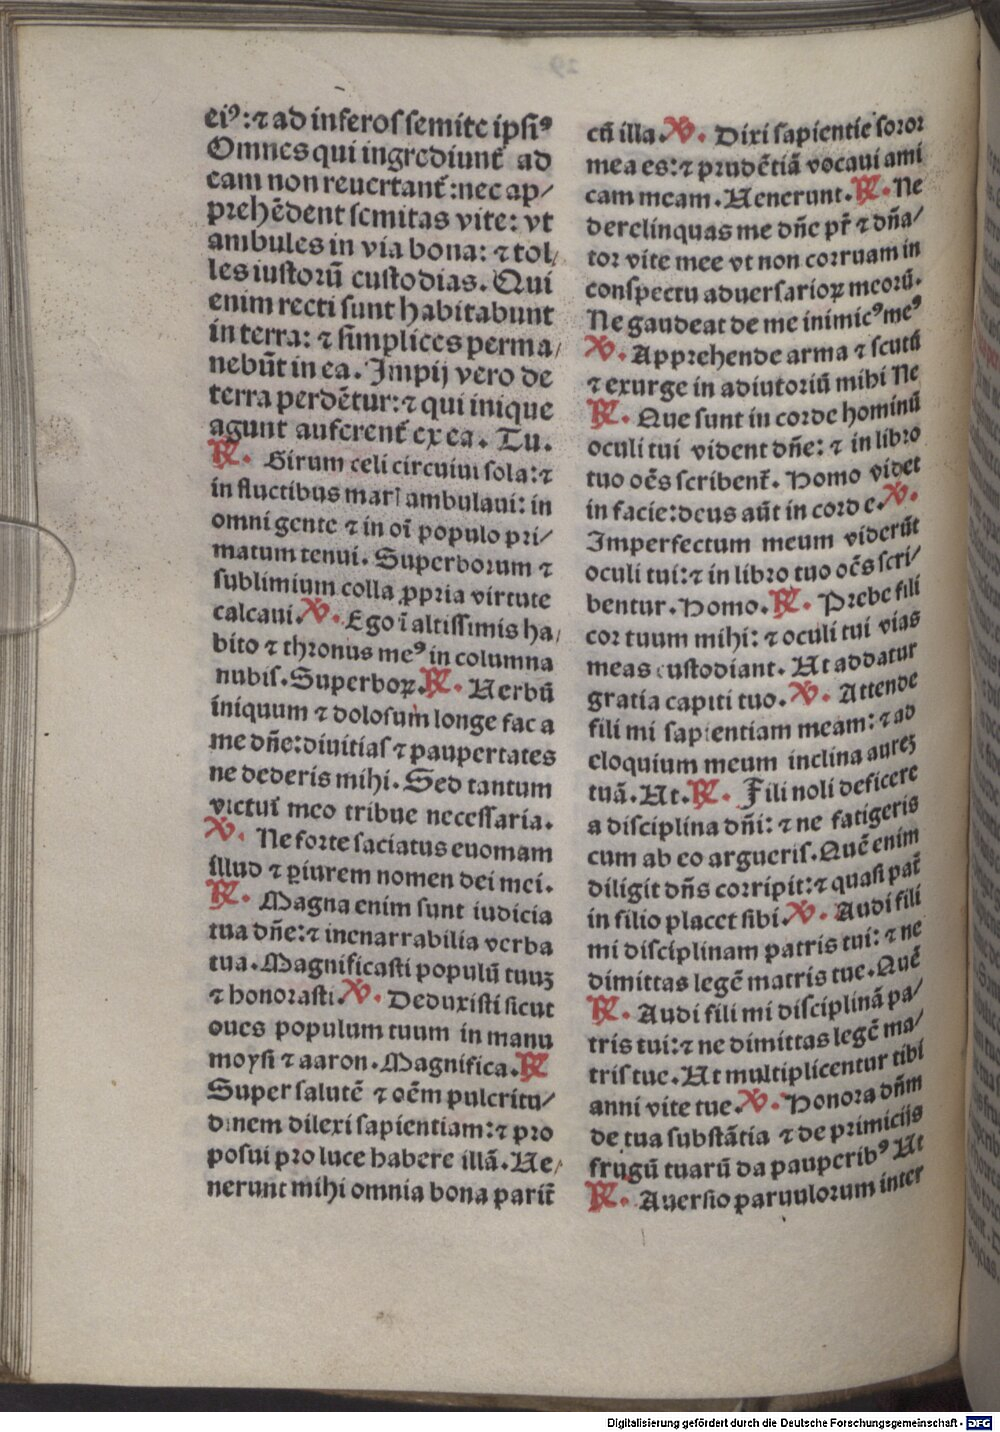 eiꝰ: ⁊ ad inferos semite ipsiꝰ
Omnes qui ingrediunt᷑ ad
eam non reuertant᷑: nec ap/
prehēdent semitas vite: vt
ambules in via bona: ⁊ tol/
les iustorū custodias. Qui
enim recti sunt habitabunt
in terra: ⁊ simplices perma/
nebūt in ea. Impij vero de
terra perdētur: ⁊ qui inique
agunt auferent᷑ ex ea. Tu.
℟. Girum celi circuiui sola: ⁊
in fluctibus marꝭ ambulaui: in
omni gente ⁊ in oī populo pri/
matum tenui. Superborum ⁊
sublimium colla ꝓpria virtute
calcaui. ℣. Ego ī altissimis ha/
bito ⁊ thronus meꝰ in columna
nubis. Superboꝝ. ℟. Uerbū
iniquum ⁊ dolosum longe fac a
me dn̄e: diuitias ⁊ paupertates
ne dederis mihi. Sed tantum
victui meo tribue necessaria.
℣. Ne forte saciatus euomam
illud ⁊ ꝑiurem nomen dei mei.
℟. Magna enim sunt iudicia
tua dn̄e: ⁊ inenarrabilia verba
tua. Magnificasti populū tuuꝫ
⁊ honorasti. ℣. Deduxisti sicut
oues populum tuum in manu
moysi ⁊ aaron. Magnifica. ℟
Super salutē ⁊ oēm pulcritu/
dinem dilexi sapientiam: ⁊ pro
posui pro luce habere illā. Ue/
nerunt mihi omnia bona parit᷑
cū illa. ℣. Dixi sapientie soror
mea es: ⁊ prudētiā vocaui ami
cam meam. Uenerunt. ℟. Ne
derelinquas me dn̄e pr̄ ⁊ dn̄a/
tor vite mee vt non corruam in
conspectu aduersarioꝝ meorū.
Ne gaudeat de me inimicꝰ meꝰ
℣. Apprehende arma ⁊ scutū
⁊ exurge in adiutoriū mihi Ne
℟. Que sunt in corde hominū
oculi tui vident dn̄e: ⁊ in libro
tuo oēs scribent᷑. Homo videt
in facie: deus aūt in corde. ℣.
Imperfectum meum viderūt
oculi tui: ⁊ in libro tuo oēs scri/
bentur. Homo. ℟. Prebe fili
cor tuum mihi: ⁊ oculi tui vias
meas custodiant. Ut addatur
gratia capiti tuo. ℣. Attende
fili mi sapientiam meam: ⁊ ad
eloquium meum inclina aureꝫ
tuā. Ut. ℟. Fili noli deficere
a disciplina dn̄i: ⁊ ne fatigeris
cum ab eo argueris. Quē enim
diligit dn̄s corripit: ⁊ quasi pat᷑
in filio placet sibi. ℣. Audi fili
mi disciplinam patris tui: ⁊ ne
dimittas legē matris tue. Quē
℟. Audi fili mi disciplinā pa/
tris tui: ⁊ ne dimittas legē ma/
tris tue. Ut multiplicentur tibi
anni vite tue. ℣. Honora dn̄m
de tua substātia ⁊ de primiciis
frugū tuarū da pauperibꝰ Ut
℟. Auersio paruulorum inter
Digitalisierung gefördert durch die Deutsche Forschungsgemeinschaft - DFG